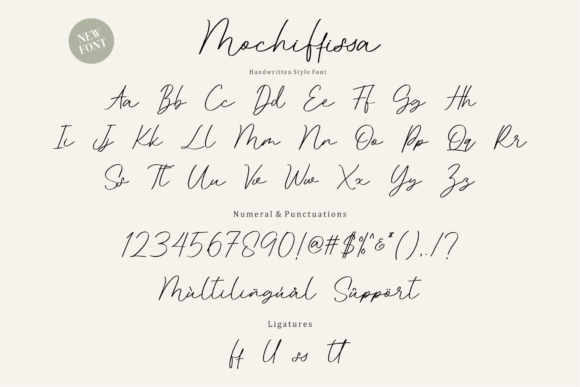 NEW
FONT
Mochiffissa
Handwritten Style Font
Aa Bb Cc Dd Ee Ff Gg Hh
Ii Jj Kk Ll Mm Nn Oo Pp Qq Rr
Ss Tt Uu Vv Ww Xx Yy Zz
Numeral & Punctuations
1234567890!@#$%^&*(),./?
Mùltilingúål Sûppört
Ligatures
ff ll ss tt